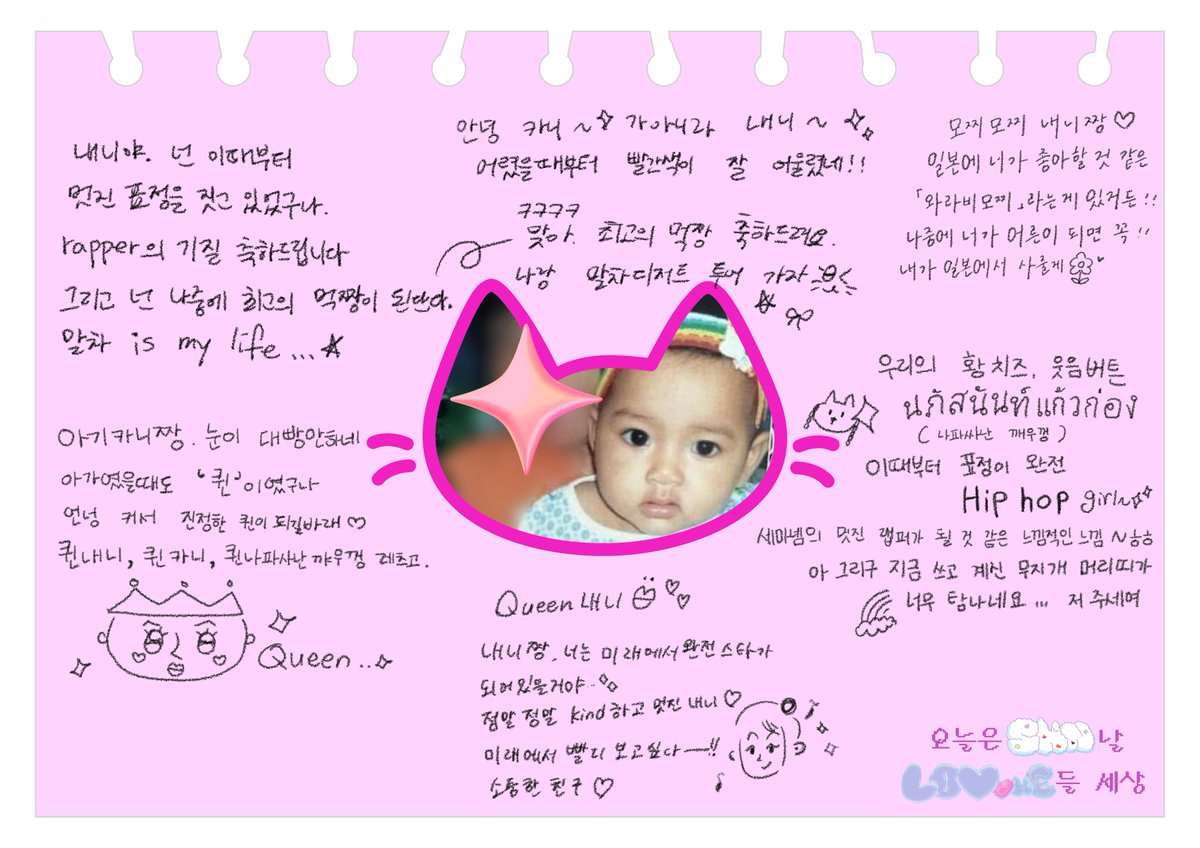 내니야. 넌 이때부터
멋진 표정을 짓고 있었구나.
rapper의 기질 축하드립니다
그리고 넌 나중에 최고의 먹짱이 된단다.
말차 is my life...
안녕 카니~ 가아니라 내니~
어렸을때부터 빨간색이 잘 어울렸네!!
ㅋㅋㅋㅋ
맞아. 최고의 먹짱 축하드려요.
나랑 말차디저트 투어 가자
모찌모찌 내니짱♡
일본에 너가 좋아할 것 같은
「와라비모찌」라는게 있거든!!
나중에 너가 어른이 되면 꼭!!
내가 일본에서 사줄게
아기카니짱. 눈이 대빵만하네
아가였을때도 '퀸'이였구나
언넝 커서 진정한 퀸이 되길바래♡
퀸내니, 퀸카니, 퀸나파사난 깨우껭 레츠고.
Queen..
우리의 황치즈, 웃음버튼
นภัสนันท์แก้วก่อง
(나파사난 깨우껭)
이때부터 표정이 완전
Hip hop girl~
세마넴의 멋진 랩퍼가 될 것 같은 느낌적인느낌~ㅎㅎ
아 그리구 지금 쓰고 계신 무지개 머리띠가
너무 탐나네요... 저 주세여
Queen내니
내니짱. 너는 미래에서 완전스타가
되어있을거야..
정말정말 kind하고 멋진 내니♡
미래에서 빨리 보고싶다—!!
소중한 친구♡
오늘은 날
들 세상